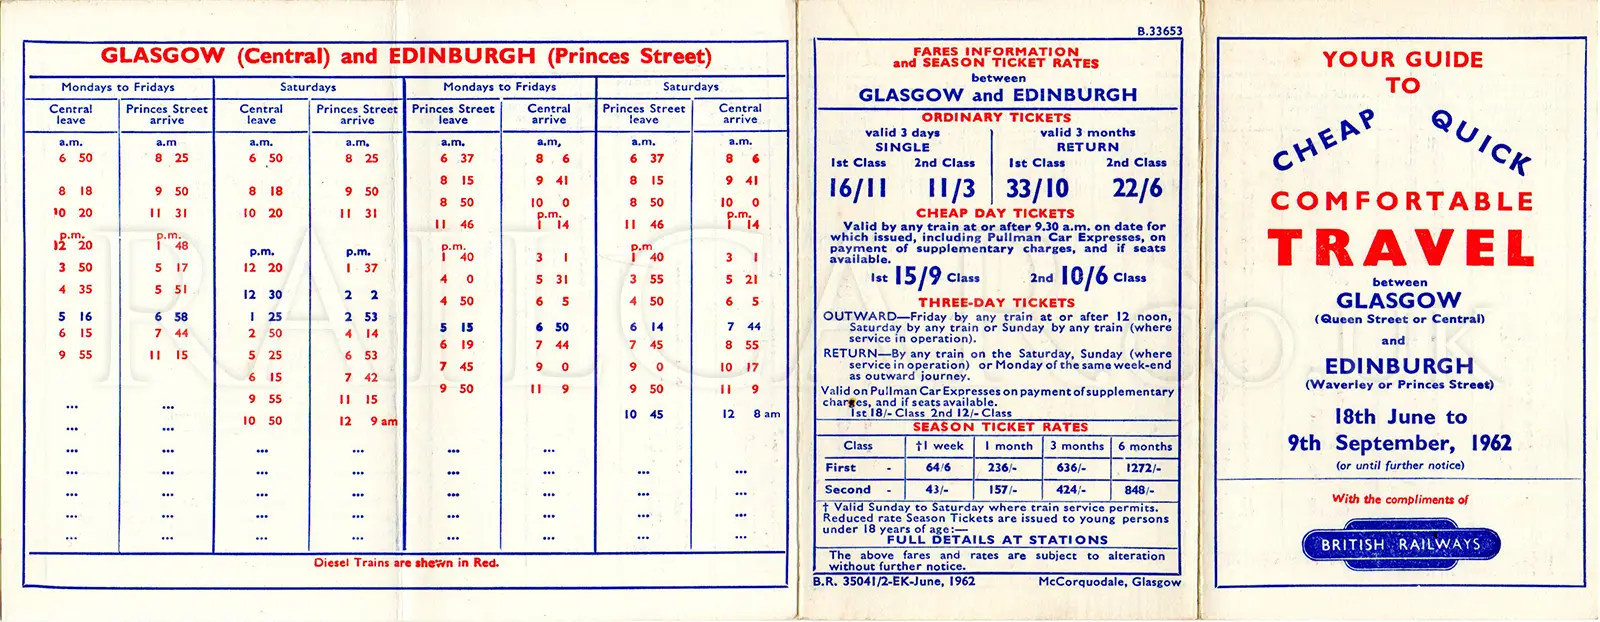 GLASGOW (Central) and EDINBURGH (Princes Street)
Mondays to Fridays Saturdays Mondays to Fridays Saturdays
Central leave Princes Street arrive Central leave Princes Street arrive Princes Street leave Central arrive Princes Street leave Central arrive
a.m. a.m a.m. a.m. a.m. a.m, a.m. a.m.
6 50 8 25 6 50 8 25 6 37 8 6 6 37 8 6
8 18 9 50 8 18 9 50 8 15 9 41 8 15 9 41
10 20 11 31 10 20 11 31 8 50 10 0 8 50 10 0
p.m. p.m.
11 46 1 14 11 46 1 14
p.m. p.m. p.m. p.m
12 20 1 48 1 40 3 1 1 40 3 1
p.m. p.m.
3 50 5 17 12 20 1 37 4 0 5 31 3 55 5 21
4 35 5 51 12 30 2 2 4 50 6 5 4 50 6 5
5 16 6 58 1 25 2 53 5 15 6 50 6 14 7 44
6 15 7 44 2 50 4 14 6 19 7 44 7 45 8 55
9 55 11 15 5 25 6 53 7 45 9 0 9 0 10 17
6 15 7 42 9 50 11 9 9 50 11 9
... ... 9 55 11 15 10 45 12 8 am
... ... 10 50 12 9 am
... ... ... ... ... ...
... ... ... ... ... ... ... ...
... ... ... ... ... ... ... ...
... ... ... ... ... ... ... ...
... ... ... ... ... ... ... ...
Diesel Trains are shewn in Red.
B.33653
FARES INFORMATION
and SEASON TICKET RATES
between
GLASGOW and EDINBURGH
ORDINARY TICKETS
valid 3 days valid 3 months
SINGLE RETURN
1st Class 2nd Class 1st Class 2nd Class
16/11 11/3 33/10 22/6
CHEAP DAY TICKETS
Valid by any train at or after 9.30 a.m. on date for
which issued, including Pullman Car Expresses, on
payment of supplementary charges, and if seats
available.
1st 15/9 Class 2nd 10/6 Class
THREE-DAY TICKETS
OUTWARD—Friday by any train at or after 12 noon,
Saturday by any train or Sunday by any train (where
service in operation).
RETURN—By any train on the Saturday, Sunday (where
service in operation) or Monday of the same week-end
as outward journey.
Valid on Pullman Car Expresses on payment of supplementary
charges, and if seats available.
1st 18/- Class 2nd 12/- Class
SEASON TICKET RATES
Class †1 week 1 month 3 months 6 months
First - 64/6 236/- 636/- 1272/-
Second - 43/- 157/- 424/- 848/-
† Valid Sunday to Saturday where train service permits.
Reduced rate Season Tickets are issued to young persons
under 18 years of age:—
FULL DETAILS AT STATIONS
The above fares and rates are subject to alteration
without further notice.
B.R. 35041/2-EK-June, 1962 McCorquodale, Glasgow
YOUR GUIDE
TO
CHEAP QUICK
COMFORTABLE
TRAVEL
between
GLASGOW
(Queen Street or Central)
and
EDINBURGH
(Waverley or Princes Street)
18th June to
9th September, 1962
(or until further notice)
With the compliments of
BRITISH RAILWAYS
RAILCAR.co.uk